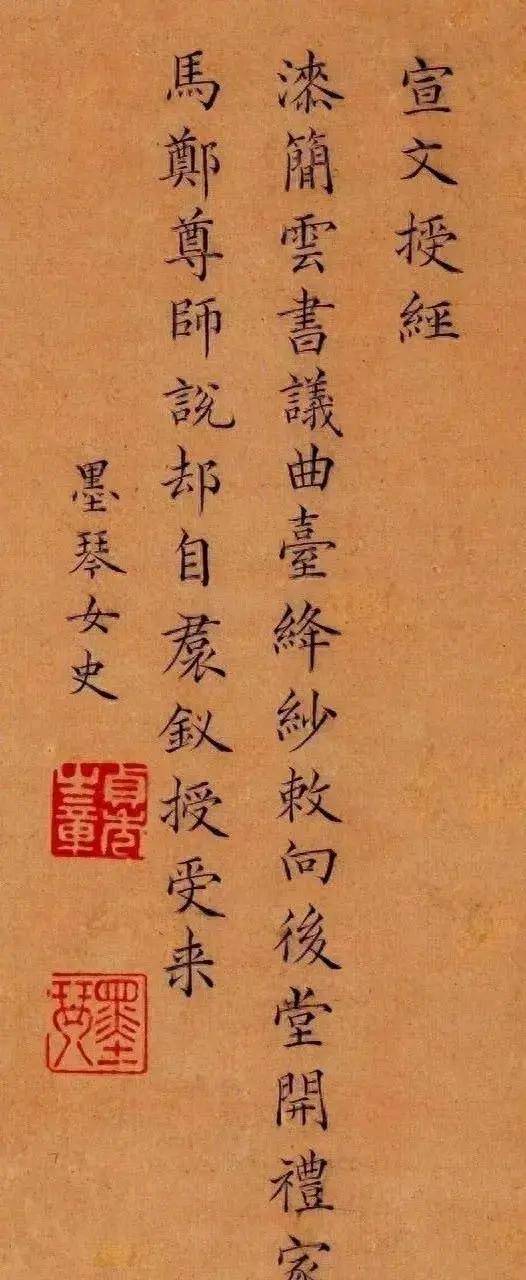 宣文授經
漆簡雲書議曲臺絳紗敕向後堂開禮家
馬鄭尊師說却自裠釵授受来
墨琴女史
貞秀